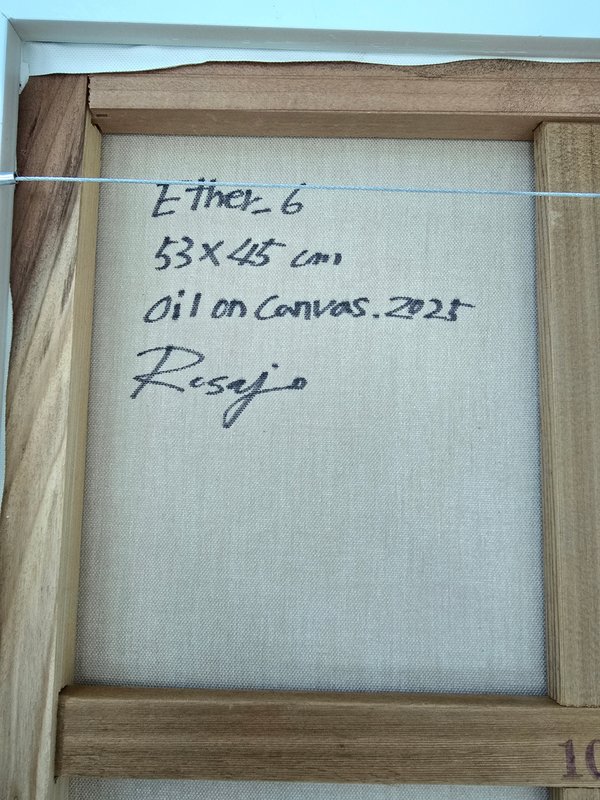 Ether_6
53×45 cm
Oil on Canvas. 2025
Rosajo
10